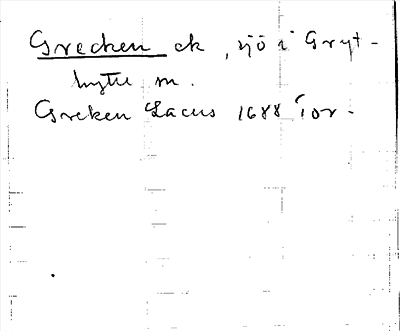 Grecken ck, sjö i Gryt-
hytte sn.
Greken Lacus 1688 Tor.